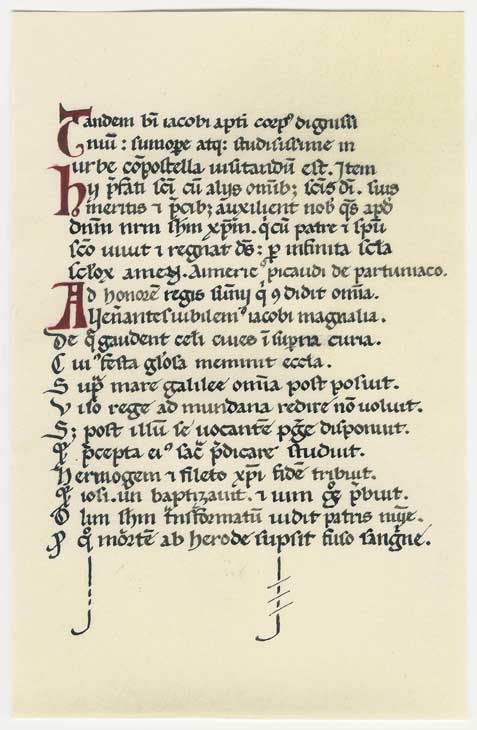 Tandem bti iacobi apti corp⁹ digniſſi
mū : sumope atq: studisissime in
urbe cōpostella visitandū est. Item
hy p̄fati scī cū alijs omīb; scīs dī. suis
meritis & p̄cib; auxilient nob̄ q̄s apd
dnm nrm ihm xp̄m. q̄ cū patre & spū
scō vivit & regnat ds̄: p infinita scla
sclox amen. Aimeric⁹ picaudi de partiniaco.
Ad honorē regis sūmi q̄
omīa.
iubilem⁹ iacobi magnalia.
De q̄ gaudent celi cives ī suprna curia.
Cui⁹ festa glosa meminit eccla.
Sup̄ mare galilee omīa post posuit.
Viso rege ad mundana redire nō voluit.
S; post illū se vocantē pge disponuit.
p̄cepta ei⁹ sac̄ p̄dicare studuit.
Hermogem & fileto xp̄i fidē tribuit.
iosi. un baptizavit. &
p̄buit.
ihm tnsformatū vidit patris
q̄ mortē ab herode supsit fuso sangne.